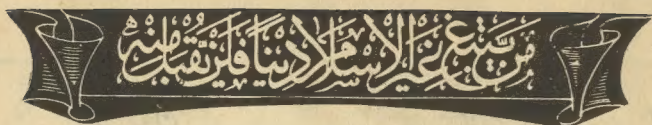 من يبتغ غير الاسلام ديناً فلن يقبل منه